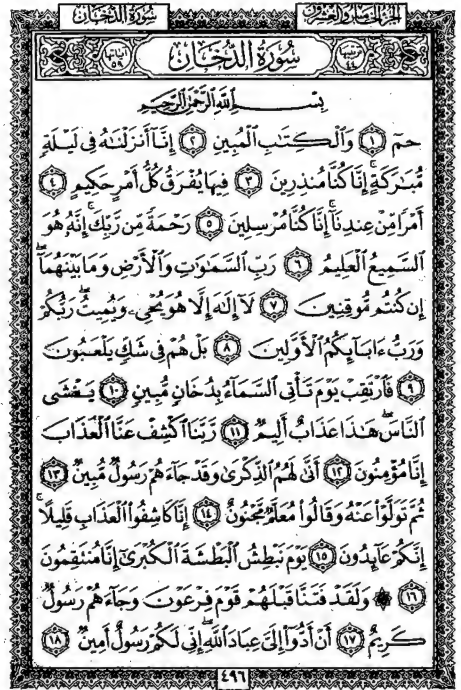 سُورَةُ الدُّخَانِ
الجزء الخامس والعشرون
ترتيبها ٤٤ سُورَةُ الدُّخَانِ آياتها ٥٩
بِسْمِ اللَّهِ الرَّحْمَٰنِ الرَّحِيمِ
حمٓ ۝١ وَٱلْكِتَٰبِ ٱلْمُبِينِ ۝٢ إِنَّآ أَنزَلْنَٰهُ فِى لَيْلَةٍ
مُّبَٰرَكَةٍ ۚ إِنَّا كُنَّا مُنذِرِينَ ۝٣ فِيهَا يُفْرَقُ كُلُّ أَمْرٍ حَكِيمٍ ۝٤
أَمْرًا مِّنْ عِندِنَآ ۚ إِنَّا كُنَّا مُرْسِلِينَ ۝٥ رَحْمَةً مِّن رَّبِّكَ ۚ إِنَّهُۥ هُوَ
ٱلسَّمِيعُ ٱلْعَلِيمُ ۝٦ رَبِّ ٱلسَّمَٰوَٰتِ وَٱلْأَرْضِ وَمَا بَيْنَهُمَآ ۖ
إِن كُنتُم مُّوقِنِينَ ۝٧ لَآ إِلَٰهَ إِلَّا هُوَ يُحْىِۦ وَيُمِيتُ ۖ رَبُّكُمْ
وَرَبُّ ءَابَآئِكُمُ ٱلْأَوَّلِينَ ۝٨ بَلْ هُمْ فِى شَكٍّ يَلْعَبُونَ
۝٩ فَٱرْتَقِبْ يَوْمَ تَأْتِى ٱلسَّمَآءُ بِدُخَانٍ مُّبِينٍ ۝١٠ يَغْشَى
ٱلنَّاسَ ۖ هَٰذَا عَذَابٌ أَلِيمٌ ۝١١ رَّبَّنَا ٱكْشِفْ عَنَّا ٱلْعَذَابَ
إِنَّا مُؤْمِنُونَ ۝١٢ أَنَّىٰ لَهُمُ ٱلذِّكْرَىٰ وَقَدْ جَآءَهُمْ رَسُولٌ مُّبِينٌ ۝١٣
ثُمَّ تَوَلَّوْا۟ عَنْهُ وَقَالُوا۟ مُعَلَّمٌ مَّجْنُونٌ ۝١٤ إِنَّا كَاشِفُوا۟ ٱلْعَذَابِ قَلِيلًا ۚ
إِنَّكُمْ عَآئِدُونَ ۝١٥ يَوْمَ نَبْطِشُ ٱلْبَطْشَةَ ٱلْكُبْرَىٰٓ إِنَّا مُنتَقِمُونَ
۝١٦ ۞ وَلَقَدْ فَتَنَّا قَبْلَهُمْ قَوْمَ فِرْعَوْنَ وَجَآءَهُمْ رَسُولٌ
كَرِيمٌ ۝١٧ أَنْ أَدُّوٓا۟ إِلَىَّ عِبَادَ ٱللَّهِ ۖ إِنِّى لَكُمْ رَسُولٌ أَمِينٌ ۝١٨
٤٩٦